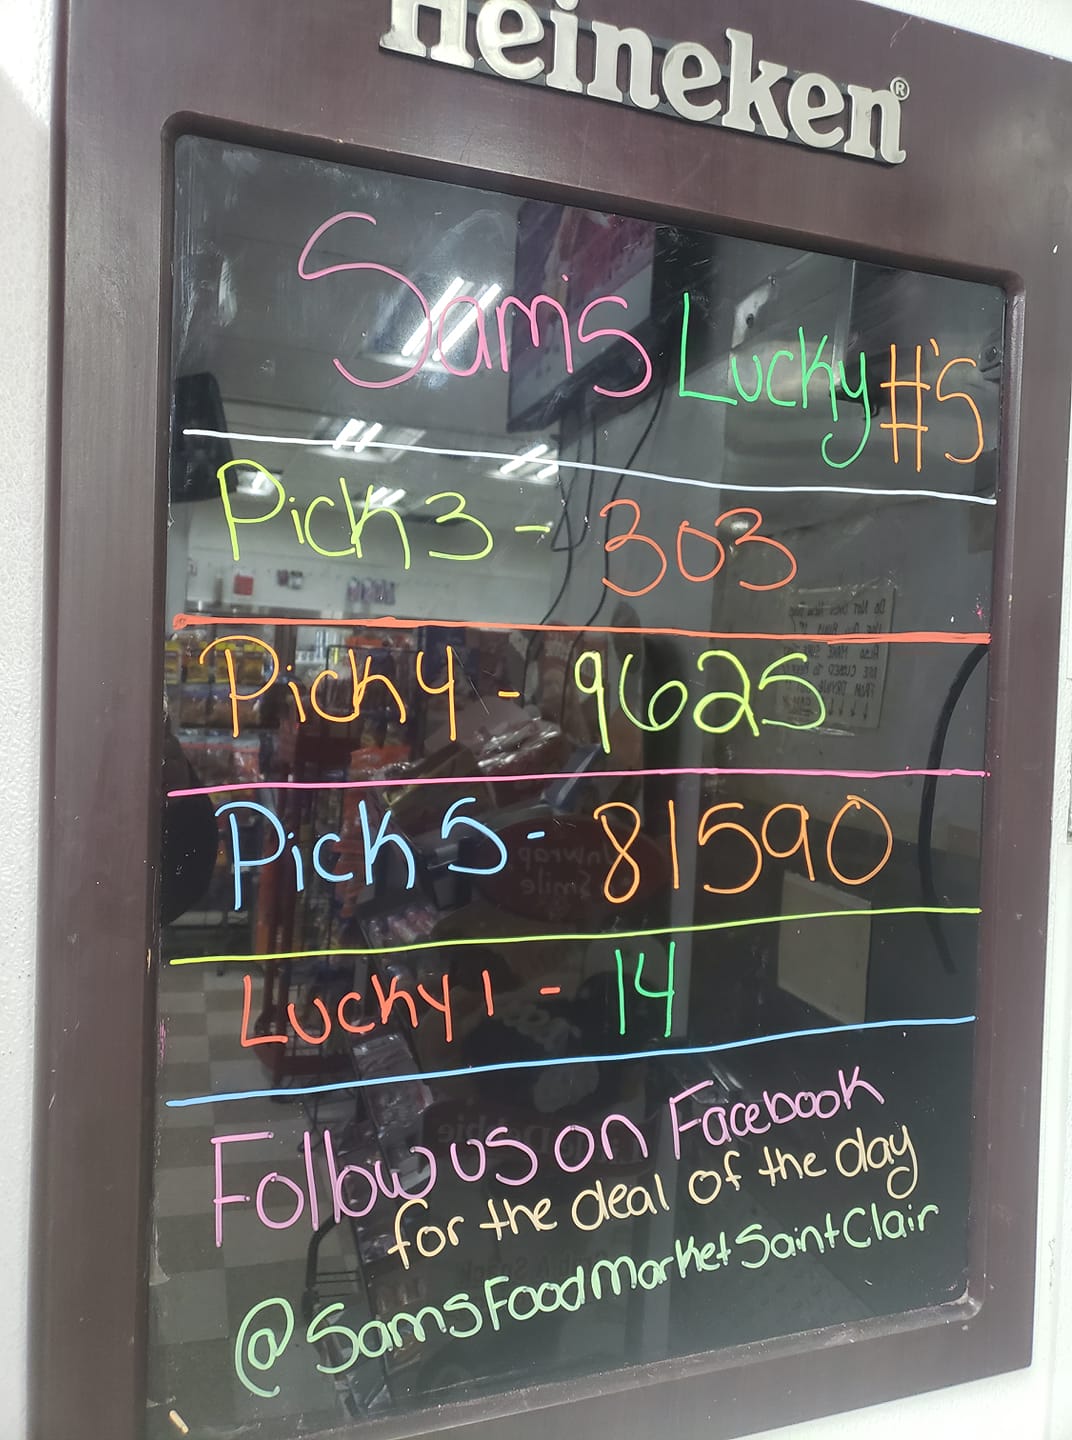 Heineken®
Sam's Lucky #'s
Pick 3 - 303
Pick 4 - 9625
Pick 5 - 81590
Lucky 1 - 14
Follow us on Facebook
for the deal of the day
@SamsFoodMarketSaintClair